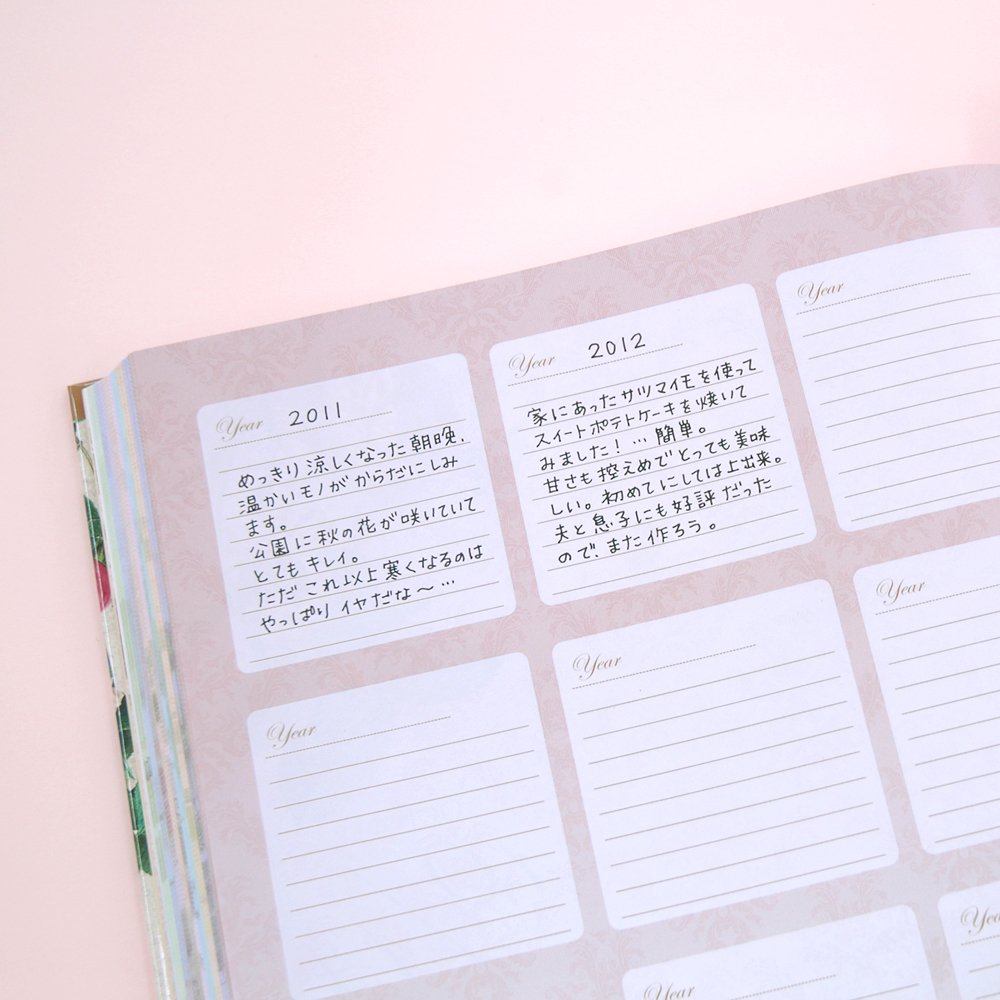 Year 2011
めっきり涼しくなった朝晩、
温かいモノがからだにしみ
ます。
公園に秋の花が咲いていて
とてもキレイ。
ただこれ以上寒くなるのは
やっぱりイヤだな〜…
Year 2012
家にあったサツマイモを使って
スイートポテトケーキを焼いて
みました！…簡単。
甘さも控えめでとっても美味
しい。初めてにしては上出来。
夫と息子にも好評だった
ので、また作ろう。
Year
Year
Year
Year
Year
Year